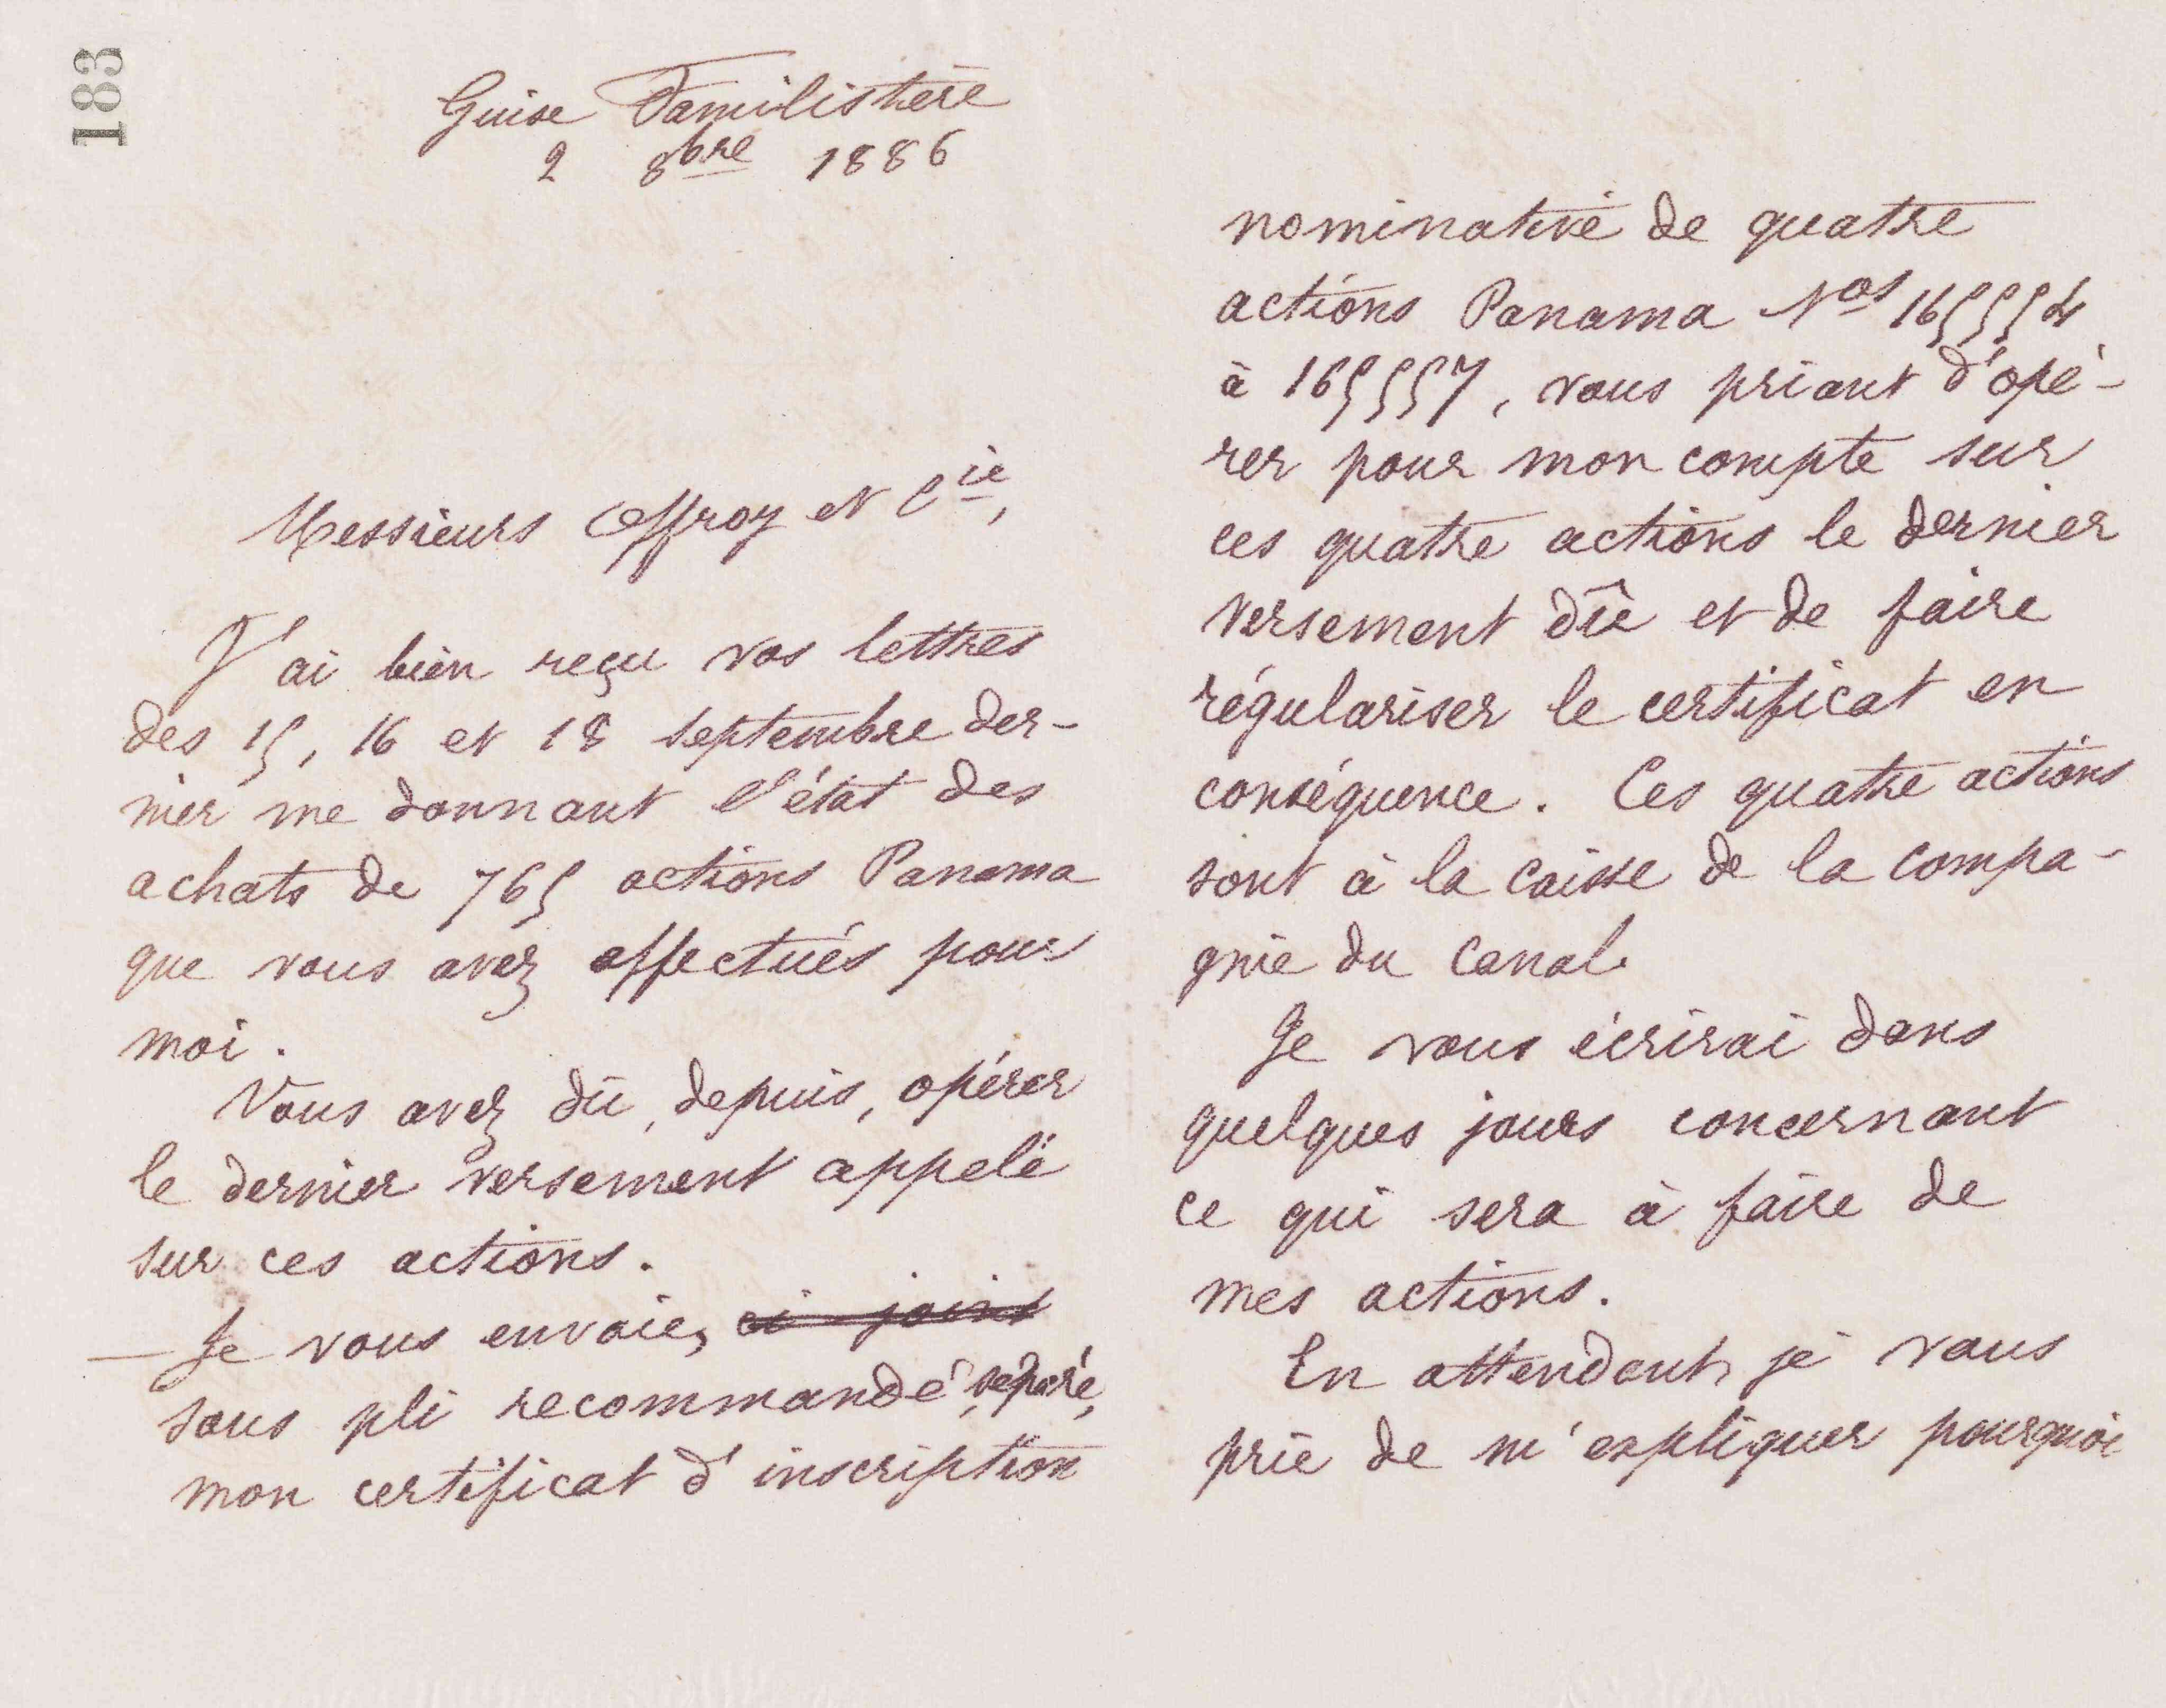 183
Guise Familistère
2 8bre 1886
Messieurs Offroy et Cie,
J'ai bien reçu vos lettres
des 15, 16 et 18 septembre der-
nier me donnant l'état des
achats de 765 actions Panama
que vous avez effectués pour
moi.
Vous avez dû, depuis, opérer
le dernier versement appelé
sur ces actions.
— Je vous envoie, ci-joint
sous pli recommandé, séparé,
mon certificat d'inscription
nominative de quatre
actions Panama Nos 165554
à 165557, vous priant d'opé-
rer pour mon compte sur
ces quatre actions le dernier
versement dû et de faire
régulariser le certificat en
conséquence. Ces quatre actions
sont à la caisse de la compa-
gnie du Canal.
Je vous écrirai dans
quelques jours concernant
ce qui sera à faire de
mes actions.
En attendant, je vous
prie de m'expliquer pourquoi